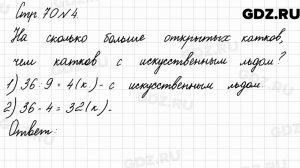 Стр. 70 №4.
GDZ.RU
На сколько больше открытых катков,
чем катков с искусственным льдом?
1) 36:9=4(к)- с искусственным льдом
2) 36-4=32(к).-
Ответ:
GDZ.RU